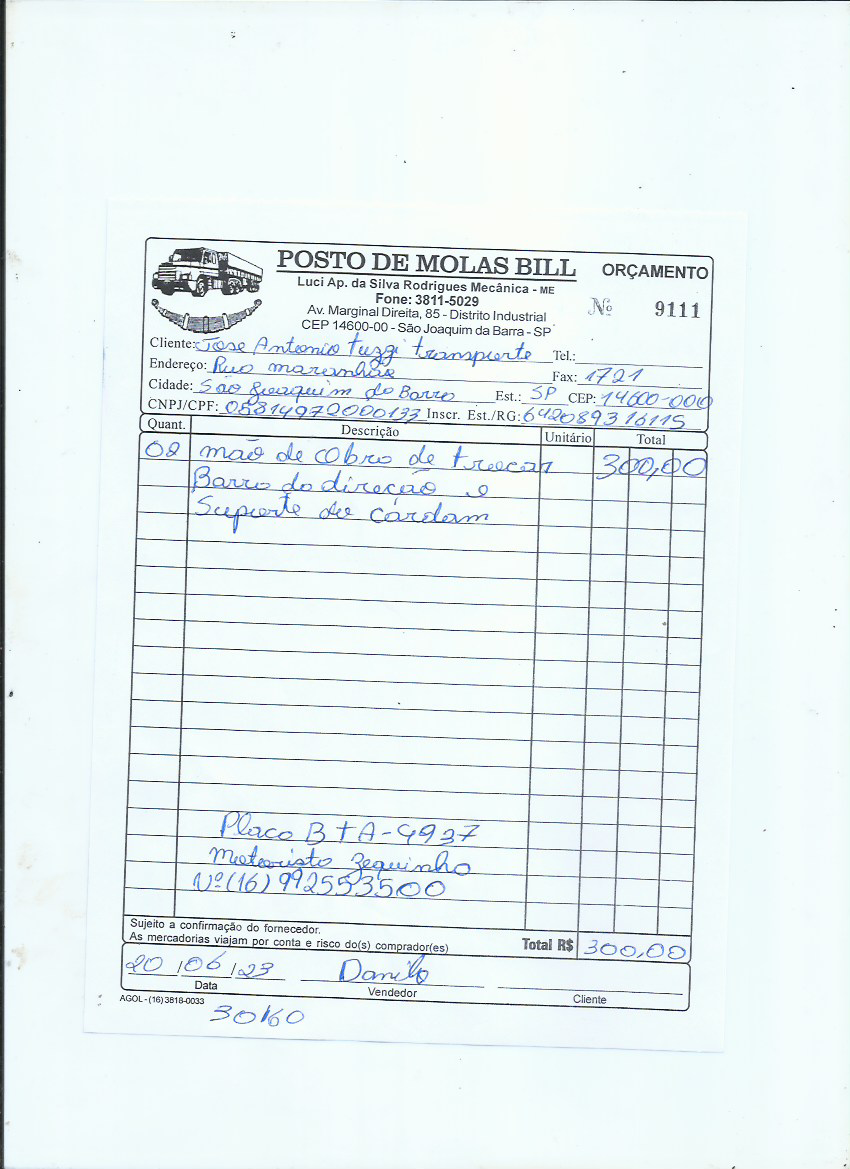 POSTO DE MOLAS BILL
ORÇAMENTO
Luci Ap. da Silva Rodrigues Mecânica - ME
Fone: 3811-5029
Nº 9111
Av. Marginal Direita, 85 - Distrito Industrial
CEP 14600-00 - São Joaquim da Barra - SP
Cliente: Jose Antonio Tuzzi transporte Tel.:
Endereço: Rua maranhão Fax: 1721
Cidade: São Joaquim da Barra Est.: SP CEP: 14600-000
CNPJ/CPF: 05814972000133 Inscr. Est./RG: 642089316115
Quant. Descrição Unitário Total
02 mão de Obra de trocar 300,00
Barra da direção e
Suporte do cardam
Placa BTA-9937
Motorista Zequinha
Nº (16) 992553500
Sujeito a confirmação do fornecedor.
As mercadorias viajam por conta e risco do(s) comprador(es)
Total R$ 300,00
20/06/23 Danilo
Data Vendedor Cliente
AGOL - (16) 3818-0033
30/60